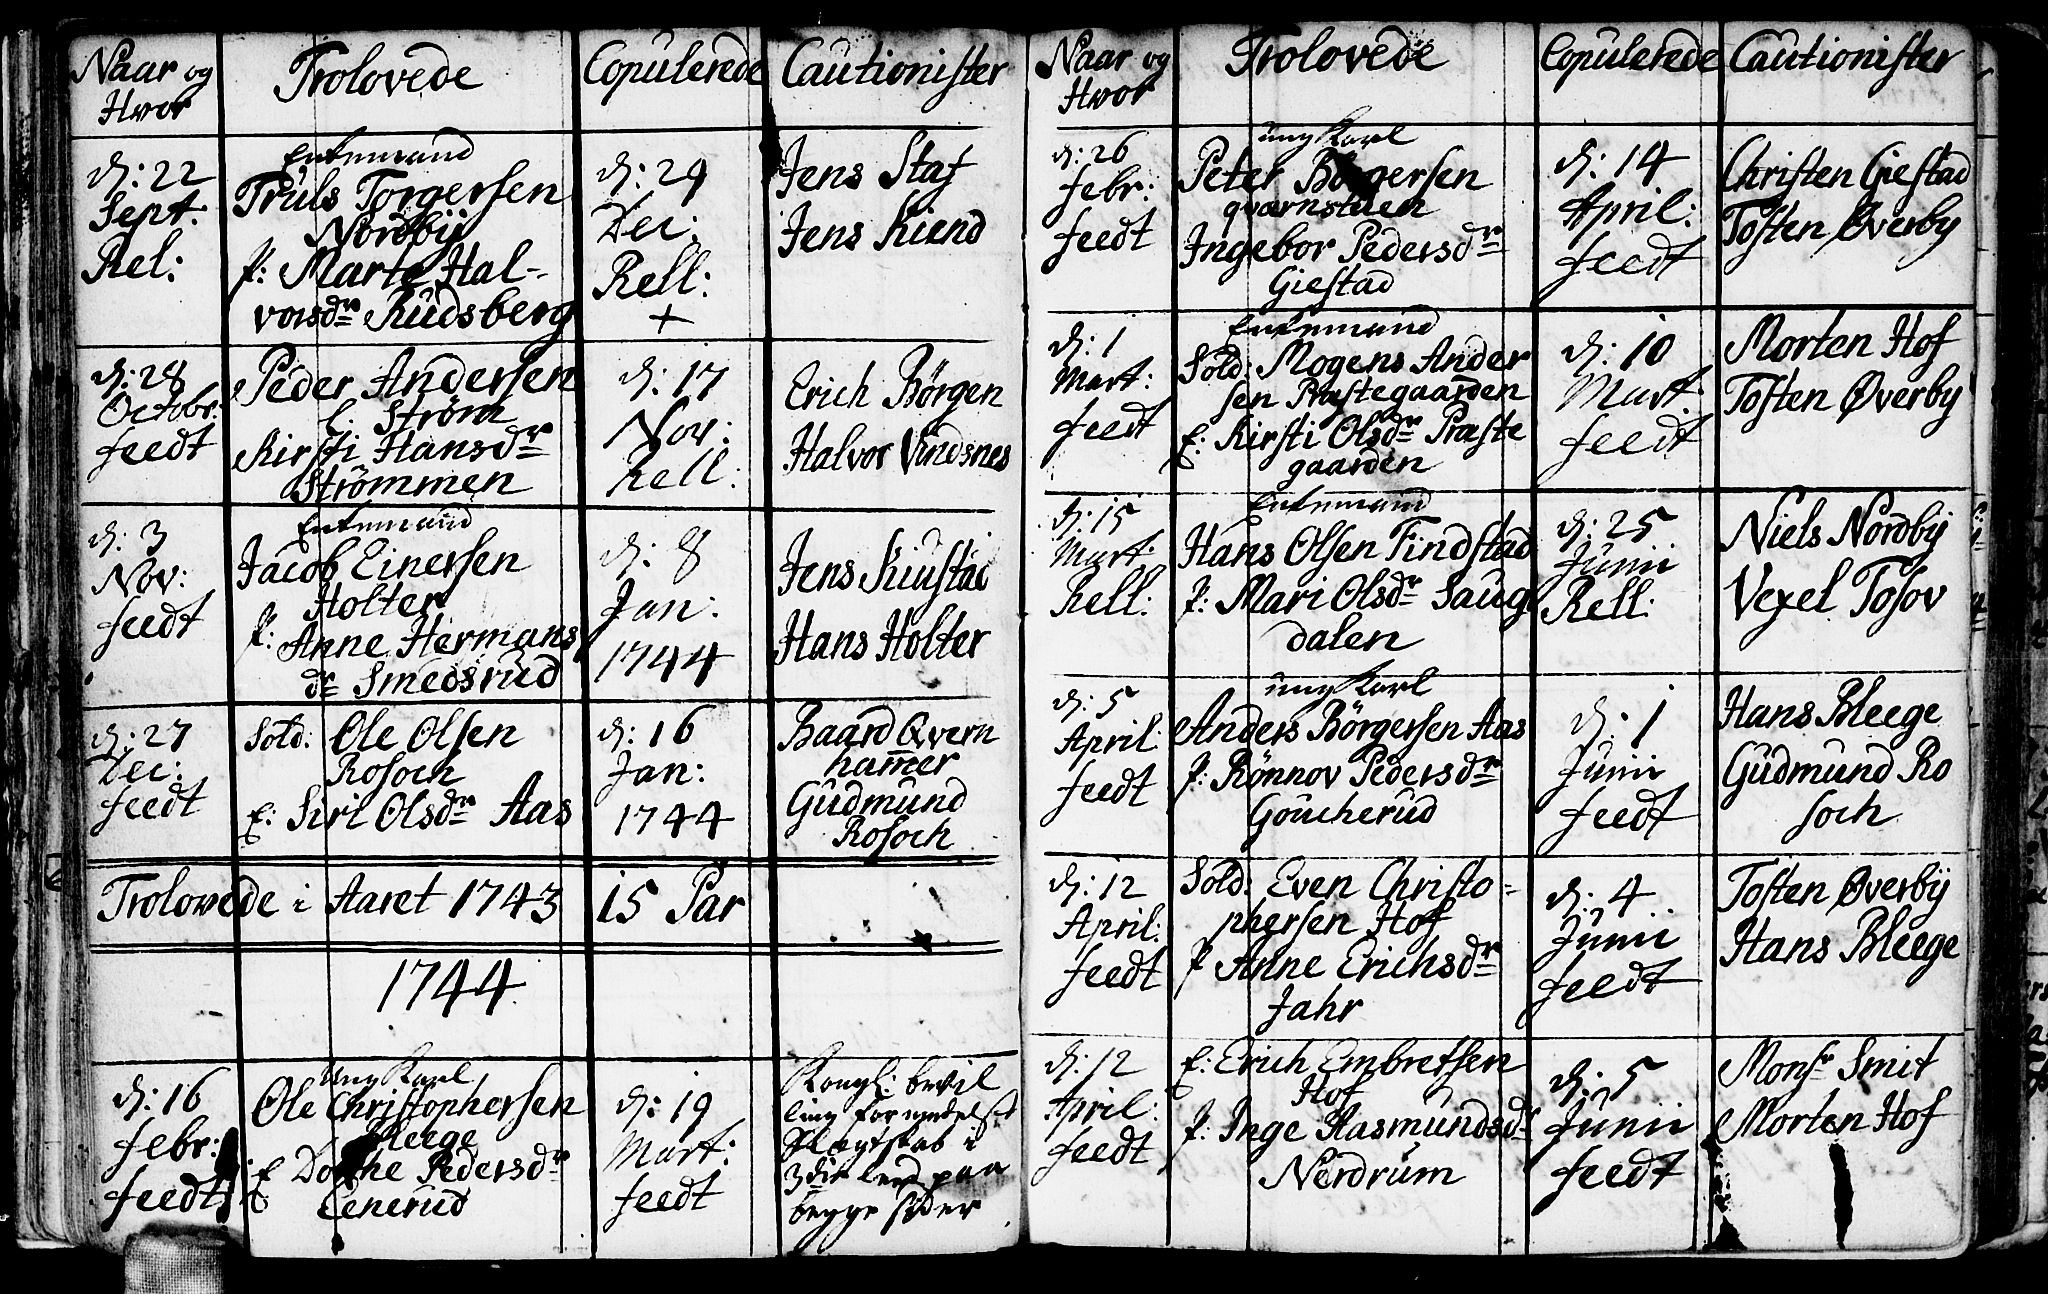 Naar og
Hvor
Trolovede
Copulerede
Cautionister
d: 22
Sept.
Rel:
Enkemand
Truls Torgersen
Nordbÿ
P: Marte Hal-
vorsdr Rudsberg
d: 29
Dec:
Rell:
+
Jens Staf
Jens Kiend
d: 28
Octobr:
feedt
Peder Andersen
E. Strøm
Kirsti Hansdr
Strømmen
d: 17
Nov:
Rell:
Erich Börgen
Halvor Vindsnes
d: 3
Nov:
feedt
Enkemand
Jacob Einersen
Holter
P: Anne Hermans
dr Smedsrud
d: 8
Jan:
1744
Jens Kiustad
Hans Holter
d: 27
Dec:
feedt
Sold: Ole Olsen
Rosoch
E: Siril Olsdr Aas
d: 16
Jan:
1744
Baard Qvern
hammer
Gudmund
Rosoch
Trolovede i Aaret 1743 15 Par
1744
d: 16
Febr:
feedt
Ung Karl
Ole Christophersen
Bleege
E Dorthe Pedersdr
Eenerud
d: 19
Mart:
feedt
Kongl: bevil
ling formedelst
Slagtskab i
3die led paa
begge sider
Naar og
Hvor
Trolovede
Copulerede
Cautionister
d: 26
Febr:
feedt
ung Karl
Peter Börgersen
qværnstuen
Ingebor Pedersdr
Giestad
d: 14
April:
feedt
Christen Giestad
Tosten Øverby
d: 1
Mart:
feedt
Enkemand
Sold: Mogens Ander
sen Præstegaarden
E: Kirsti Olsdr Præste
gaarden
d: 10
Mart:
feedt
Morten Hof
Tosten Øverby
d: 15
Mart:
Rell:
Enkemand
Hans Olsen Findstad
P: Mari Olsdr Saug
dalen
d: 25
Junii
Rell:
Niels Nordbÿ
Vexel Tosov
d: 5
April:
feedt
ung Karl
Anders Börgersen Aas
P: Rönnov Pedersdr
Goucherud
d: 1
Junii
feedt
Hans Bleege
Gudmund Ro
soch
d: 12
April:
feedt
Sold: Even Christo-
phersen Hof
P Anne Erichsdr
Jahr
d: 4
Junii
feedt
Tosten Øverbÿ
Hans Bleege
d: 12
April:
feedt
E: Erich Embretsen
Hof
P: Inge Aasmundsdr
Nerdrum
d: 5
Junii
feedt
Monsr Smit
Morten Hof